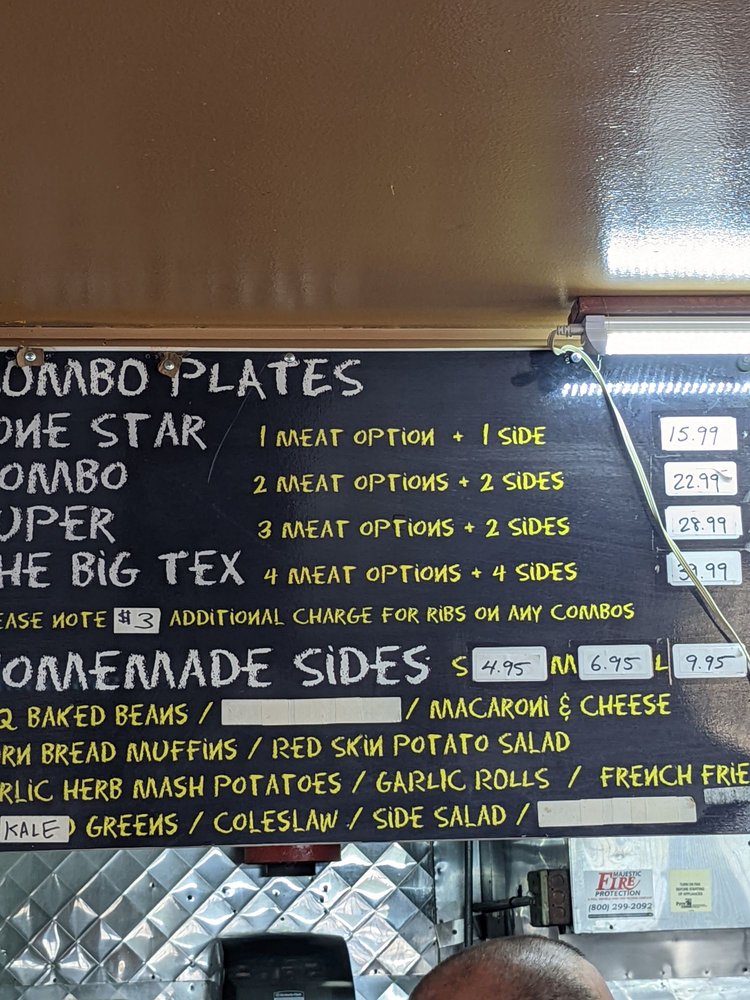 OMBO PLATES
ONE STAR 1 MEAT OPTION + 1 SIDE 15.99
OMBO 2 MEAT OPTIONS + 2 SIDES 22.99
UPER 3 MEAT OPTIONS + 2 SIDES 28.99
HE BIG TEX 4 MEAT OPTIONS + 4 SIDES 39.99
EASE NOTE $3 ADDITIONAL CHARGE FOR RIBS ON ANY COMBOS
OMEMADE SIDES S 4.95 M 6.95 L 9.95
Q BAKED BEANS / / MACARONI & CHEESE
RN BREAD MUFFINS / RED SKIN POTATO SALAD
RLIC HERB MASH POTATOES / GARLIC ROLLS / FRENCH FRIE
KALE GREENS / COLESLAW / SIDE SALAD /
MAJESTIC
FIRE
PROTECTION
(800) 299-2092